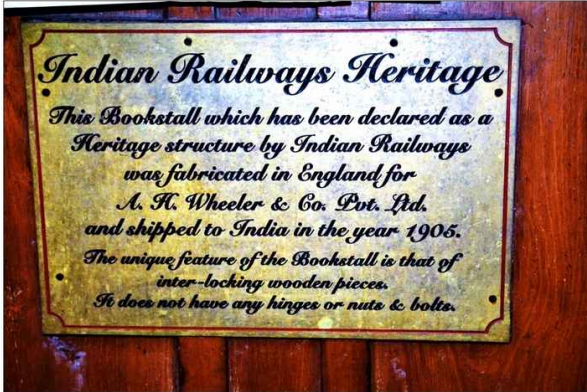 Indian Railways Heritage
This Bookstall which has been declared as a
Heritage structure by Indian Railways
was fabricated in England for
A. H. Wheeler & Co. Pvt. Ltd.
and shipped to India in the year 1905.
The unique feature of the Bookstall is that of
inter-locking wooden pieces.
It does not have any hinges or nuts & bolts.